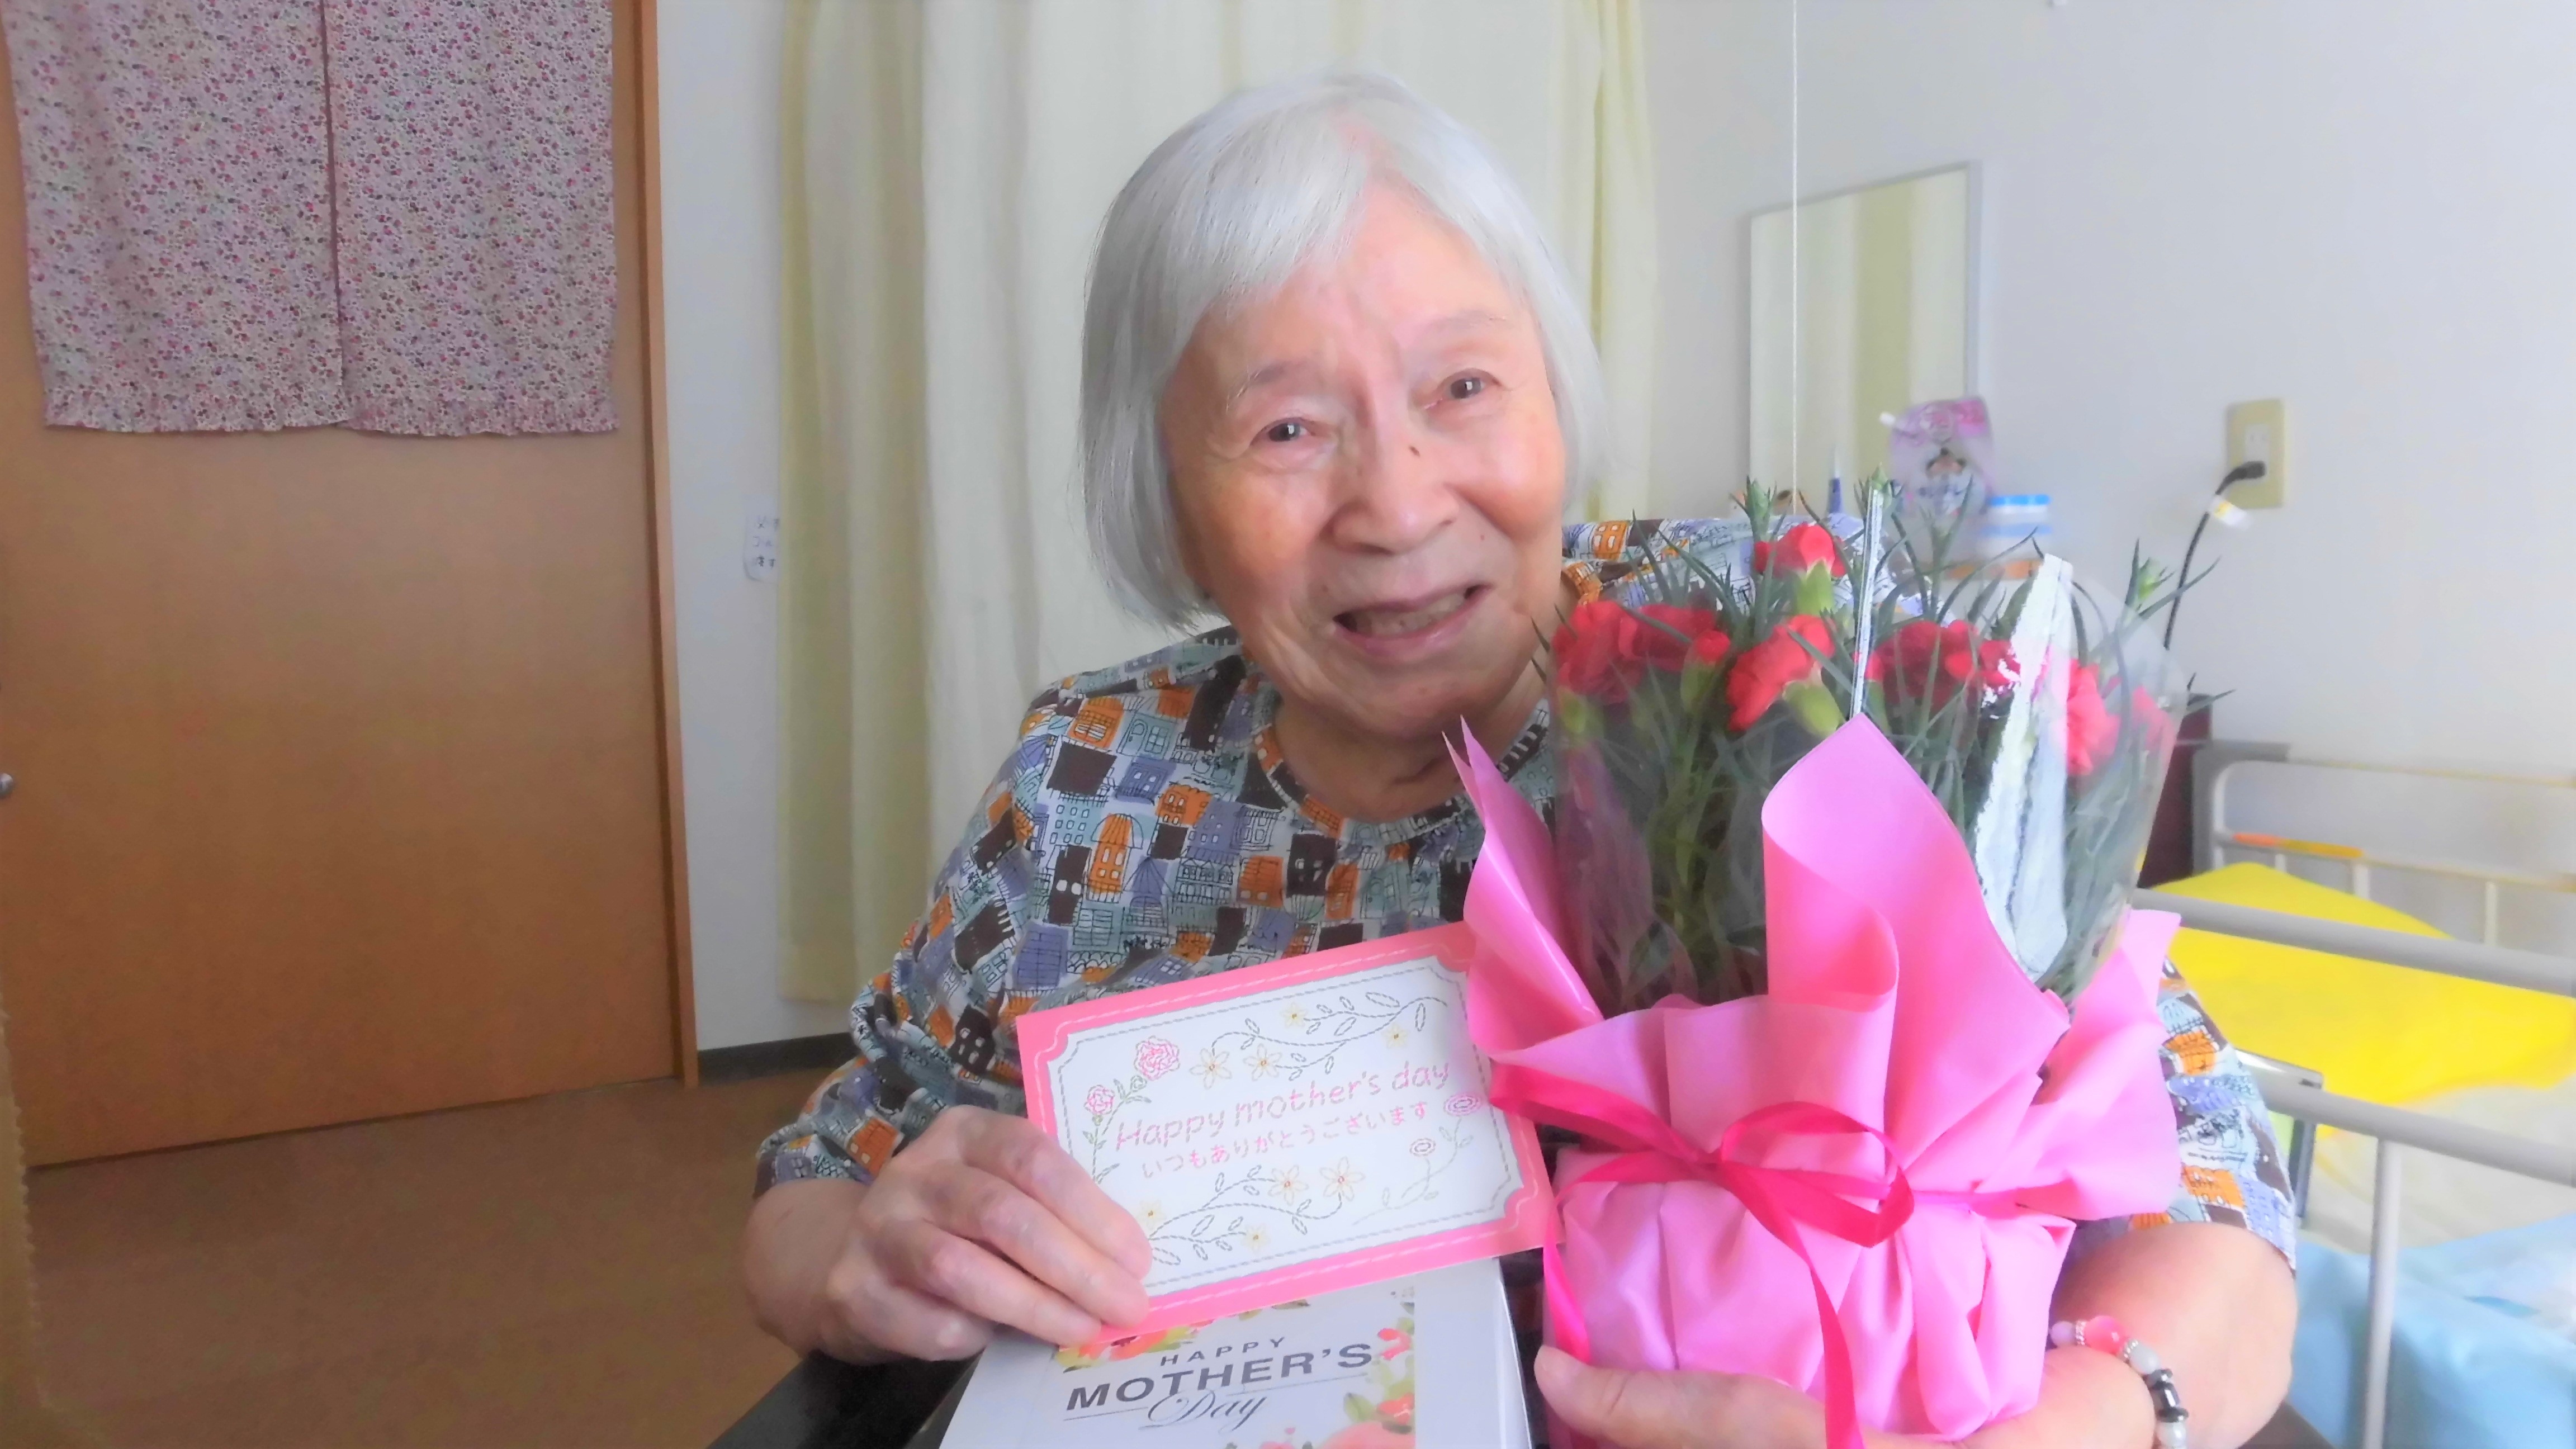 Happy mother's day
いつもありがとうございます
HAPPY
MOTHER'S
Day